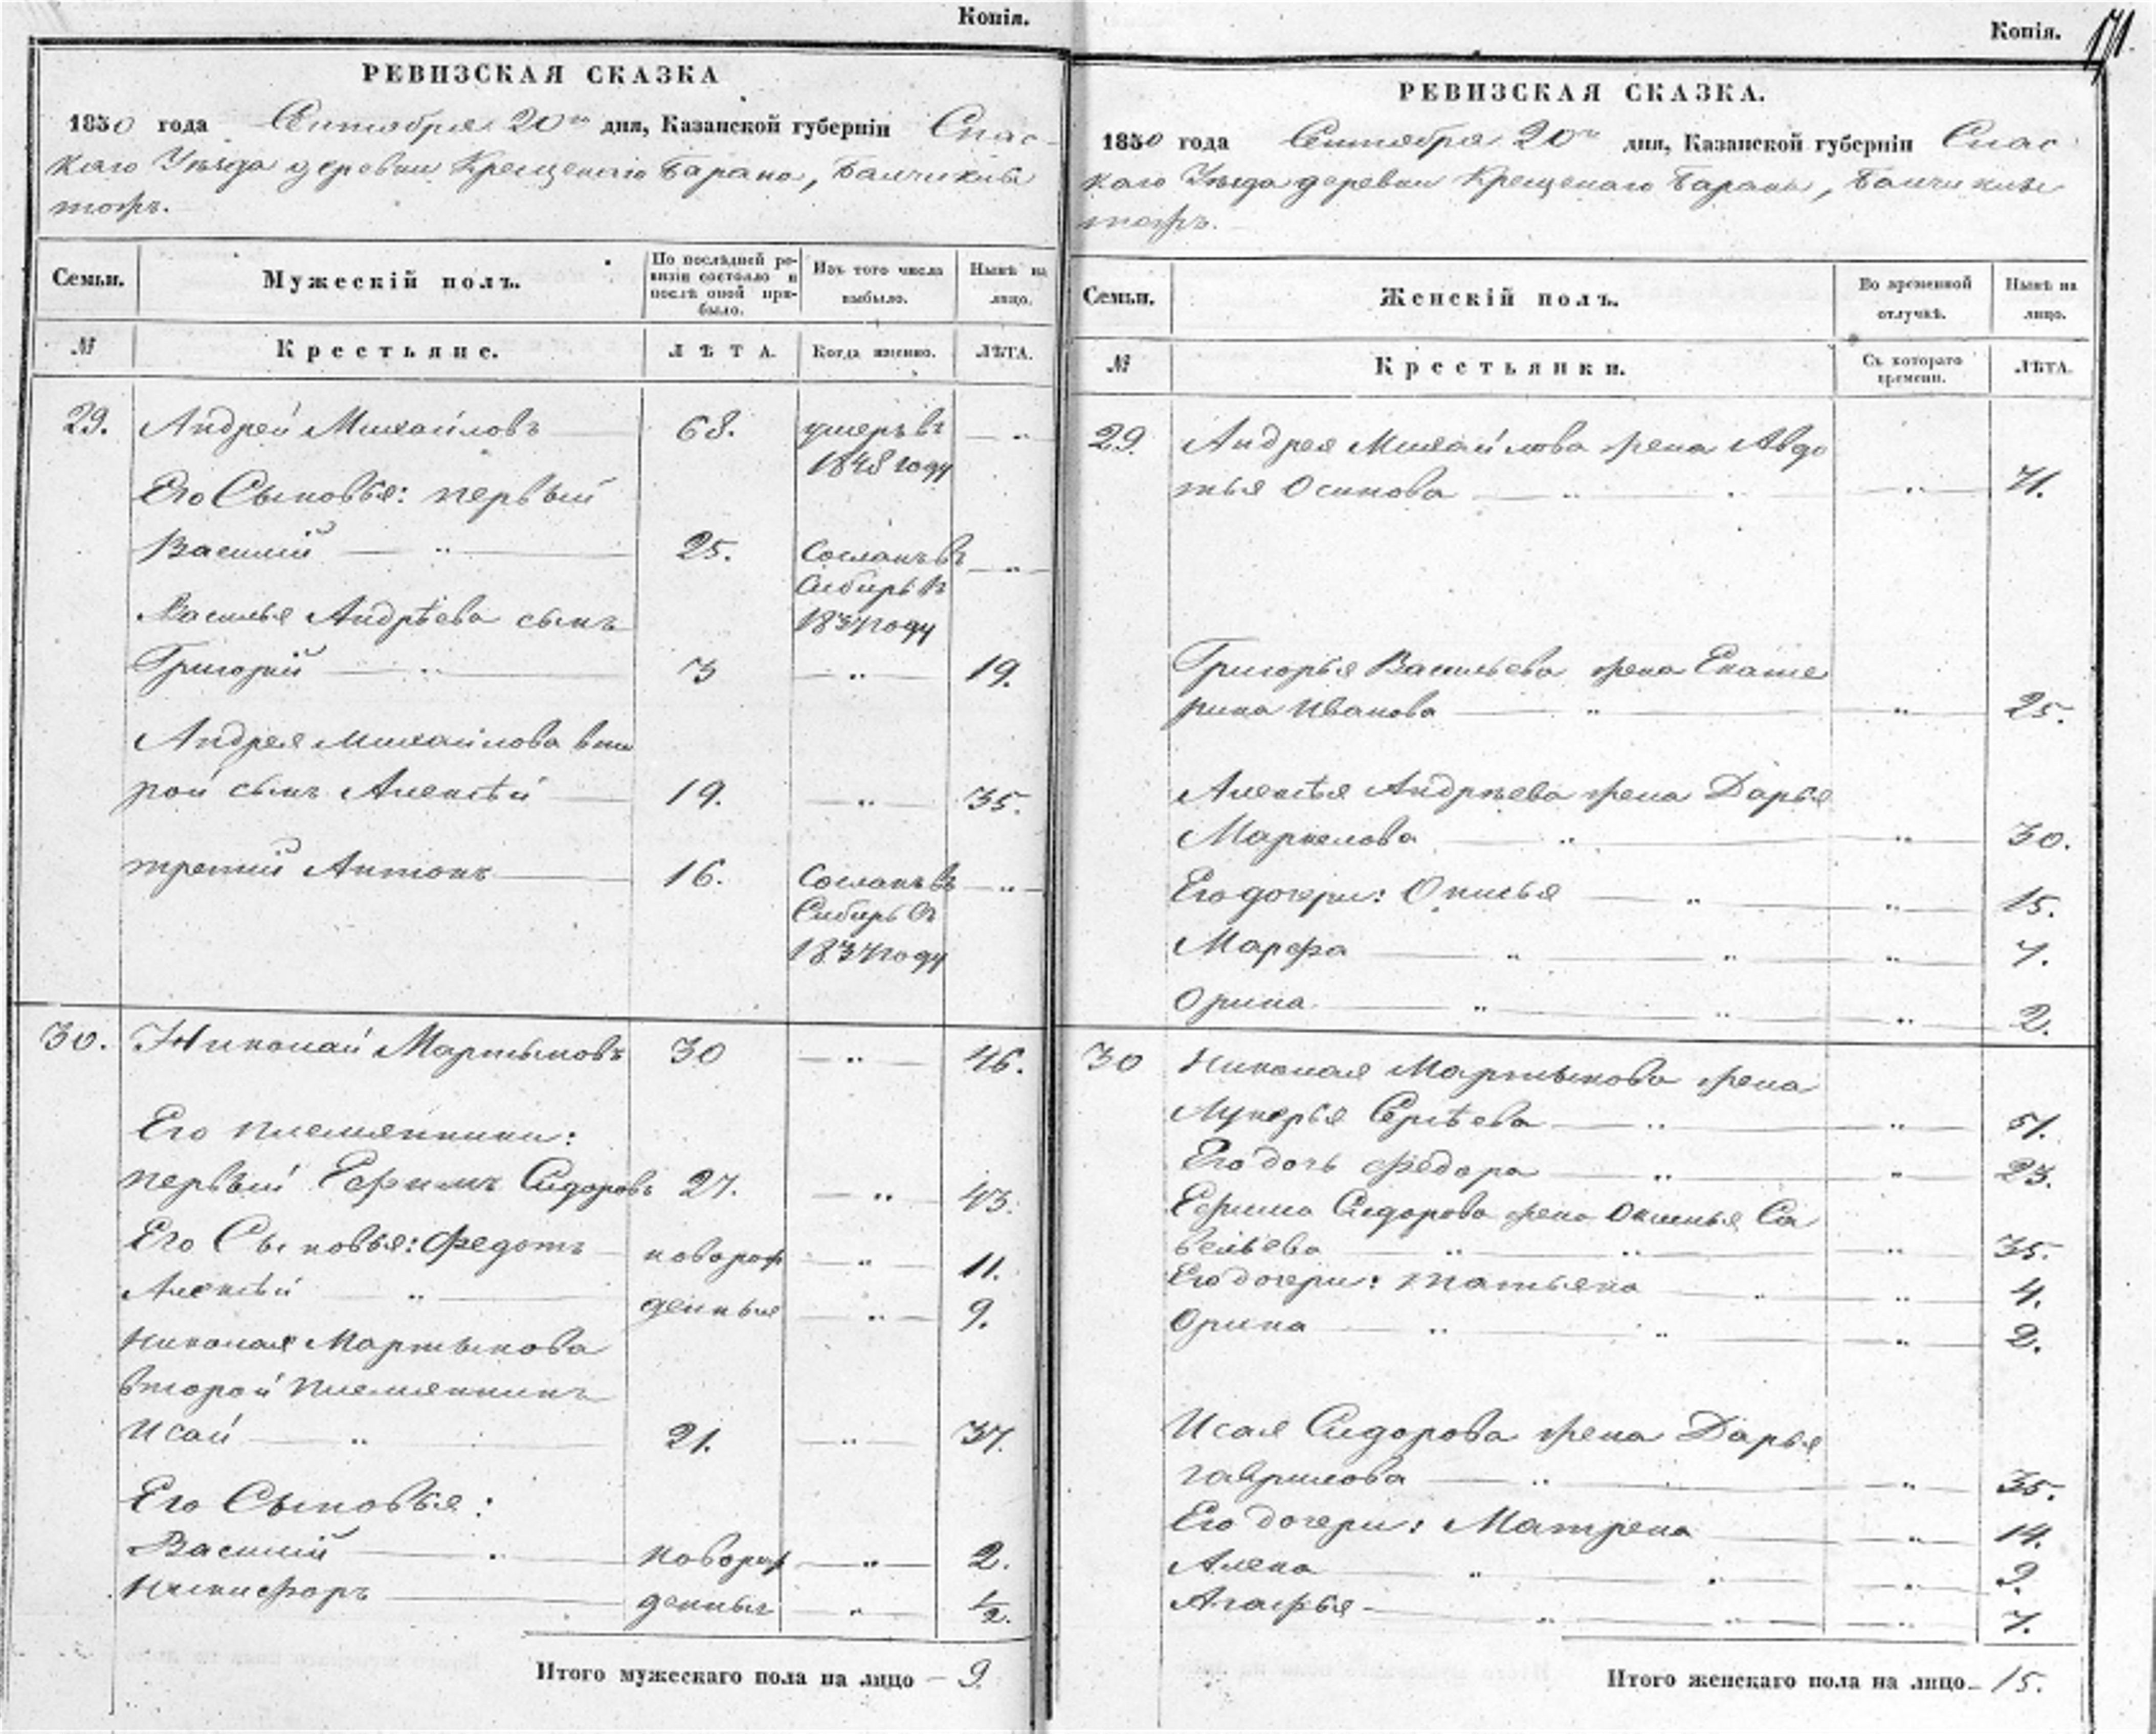 Копія.
РЕВИЗСКАЯ СКАЗКА
1850 года Сентября 20го дня, Казанской губерніи Спас-
каго Уѣзда деревни Крещенаго Барана, Балчиклы
тожъ.
Семьи.
Мужескій полъ.
По послѣдней ре-
визіи состояло и
послѣ оной при-
было.
Изъ того числа
выбыло.
Нынѣ на
лицо.
№
Крестьяне.
ЛѢТА.
Когда именно.
ЛѢТА.
29. Андрей Михайловъ 68. умеръ въ
1848 году
Его Сыновья: первый
Василий 25. Сосланъ въ
Сибирь въ
Василья Андрѣева сынъ 1837 году
Григорий 3 19.
Андрея Михайлова вто
рой сынъ Алексѣй 19. 35.
третий Антонъ 16. Сосланъ въ
Сибирь въ
1837 году
30. Николай Мартыновъ 30 46.
Его племянники:
первый Ефимъ Сидоровъ 27. 43.
Его Сыновья: Федотъ новорож 11.
Алексѣй денныя 9.
Николая Мартынова
второй племянникъ
Исай 21. 37.
Его Сыновья:
Василий новорож 2.
Никифоръ денныя ½.
Итого мужескаго пола на лицо – 9.
Копія. 171.
РЕВИЗСКАЯ СКАЗКА.
1850 года Сентября 20го дня, Казанской губерніи Спас
каго Уѣзда деревни Крещенаго Барана, Балчиклы
тожъ.
Семьи.
Женскій полъ.
Во временной
отлучкѣ.
Нынѣ на
лицо.
№
Крестьянки.
Съ котораго
времени.
ЛѢТА.
29. Андрея Михайлова жена Авдо
тья Осипова 71.
Григорья Васильева жена Екате
рина Иванова 25.
Алексѣя Андрѣева жена Дарья
Маркелова 30.
Его дочери: Окилья 15.
Марфа 7.
Орина 2.
30 Николая Мартынова жена
Лукерья Сергѣева 51.
Его дочь Федора 23.
Ефима Сидорова жена Оксинья Са
вельева 35.
Его дочери: Татьяна 4.
Орина 2.
Исая Сидорова жена Дарья
Гаврилова 35.
Его дочери: Матрена 14.
Алена 9.
Агафья 7.
Итого женскаго пола на лицо – 15.